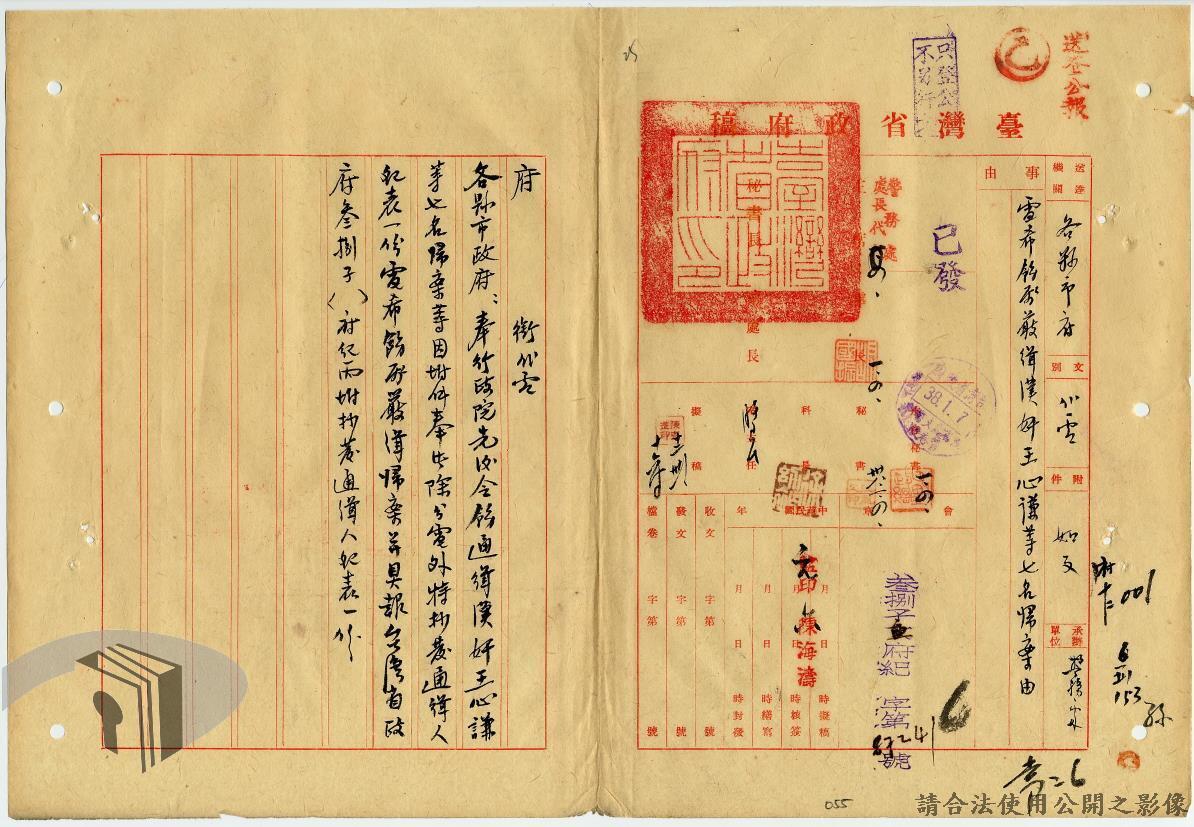 送登公報
只登公報
不另行文
臺灣省政府稿
送達機關
各縣市府
文別
代電
附件
如文
承辦單位
警務處
事由
電希飭屬嚴緝漢奸王心謙等七名歸案由
已發
警務處
處長代
秘書長
處長
38.1.7
秘書
科長
主任
擬稿
會
中華民國 年
月 日 時擬稿
月 日 時核簽
月 日 時繕寫
月 日 時封發
監印 陳海濤
收文 字第 號
發文 字第 號
檔卷 字第 號
叁捌子 府紀 字第 號
府 銜代電
各縣市政府:奉行政院先後令飭通緝漢奸王心謙
等七名歸案等因附件奉此除分電外特抄發通緝人
犯表一份電希飭所屬嚴緝歸案并具報台灣省政
府叁捌子( )府紀丙附抄發通緝人犯表一份
055
請合法使用公開之影像